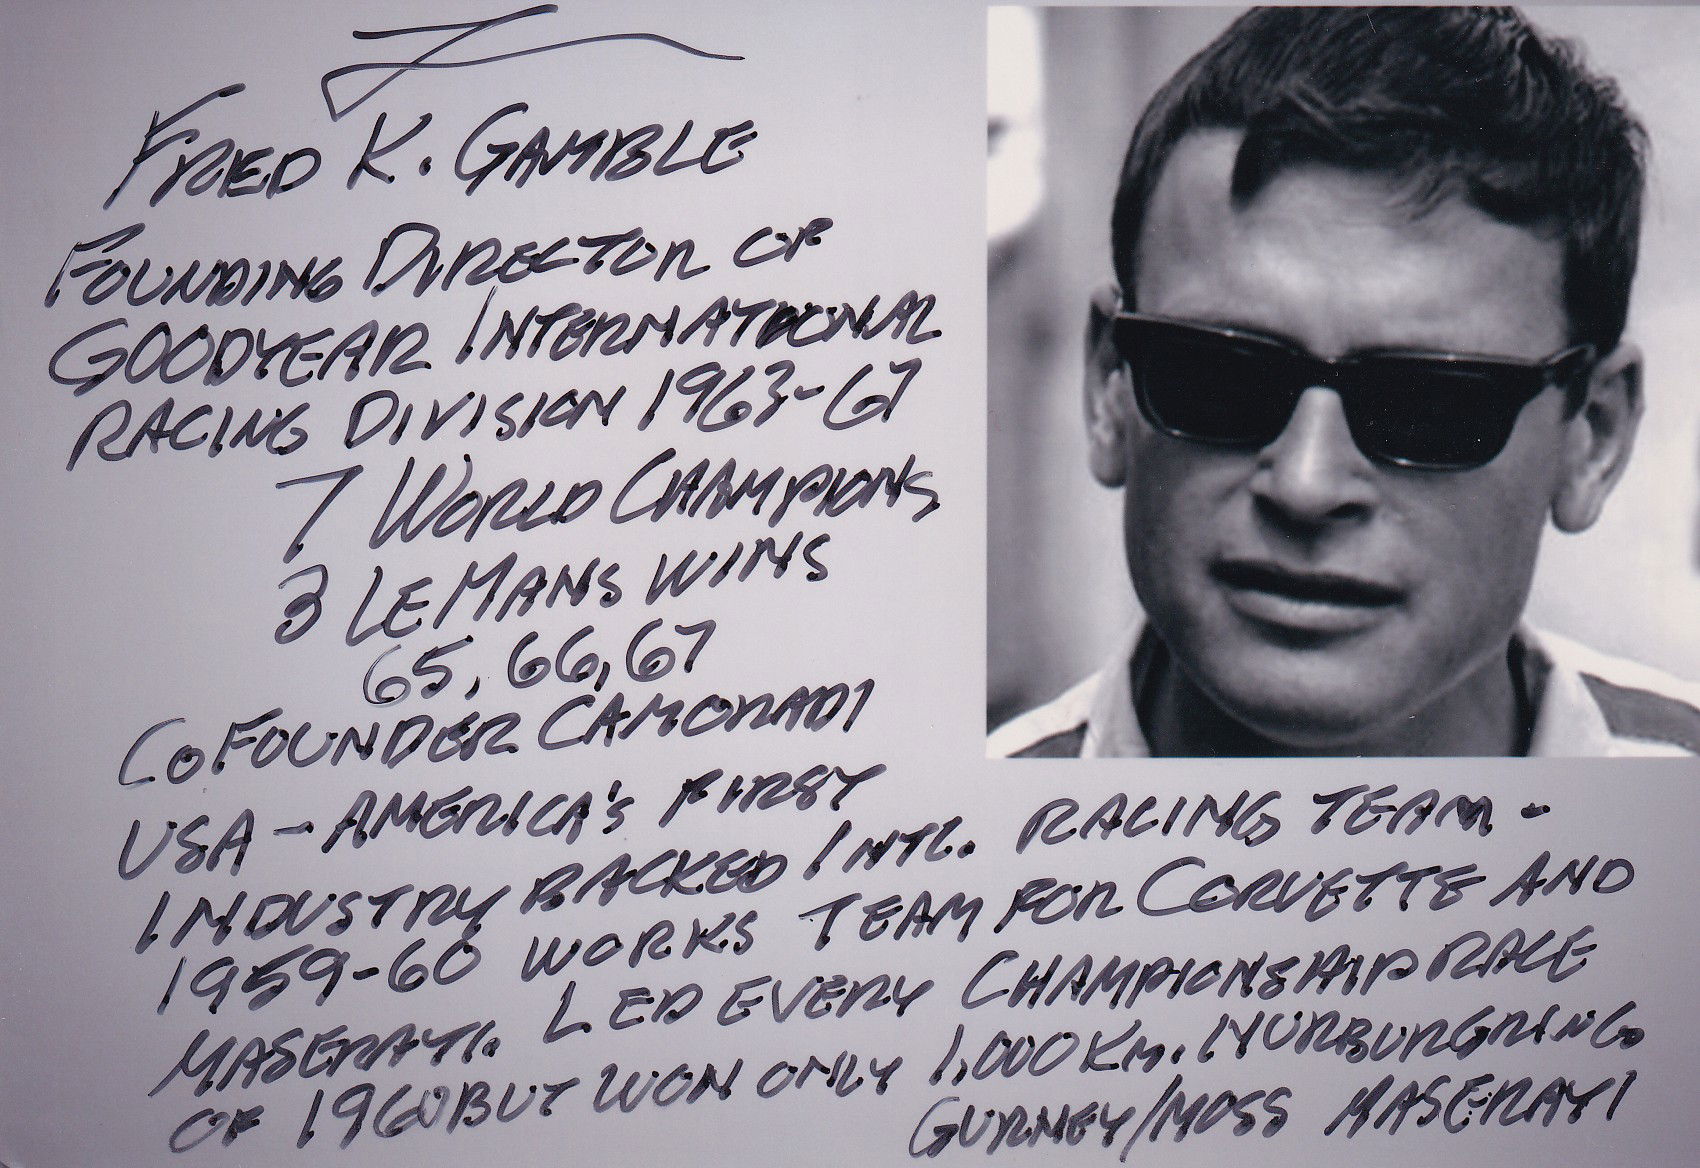 FRED K. GAMBLE
FOUNDING DIRECTOR OF
GOODYEAR INTERNATIONAL
RACING DIVISION 1963-67
7 WORLD CHAMPIONS
3 LEMANS WINS
65, 66, 67
COFOUNDER CAMORADI
USA - AMERICA'S FIRST
INDUSTRY BACKED INTL. RACING TEAM -
1959-60 WORKS TEAM FOR CORVETTE AND
MASERATI. LED EVERY CHAMPIONSHIP RACE
OF 1960 BUT WON ONLY 1,000 KM. NURBURGRING
GURNEY/MOSS MASERATI